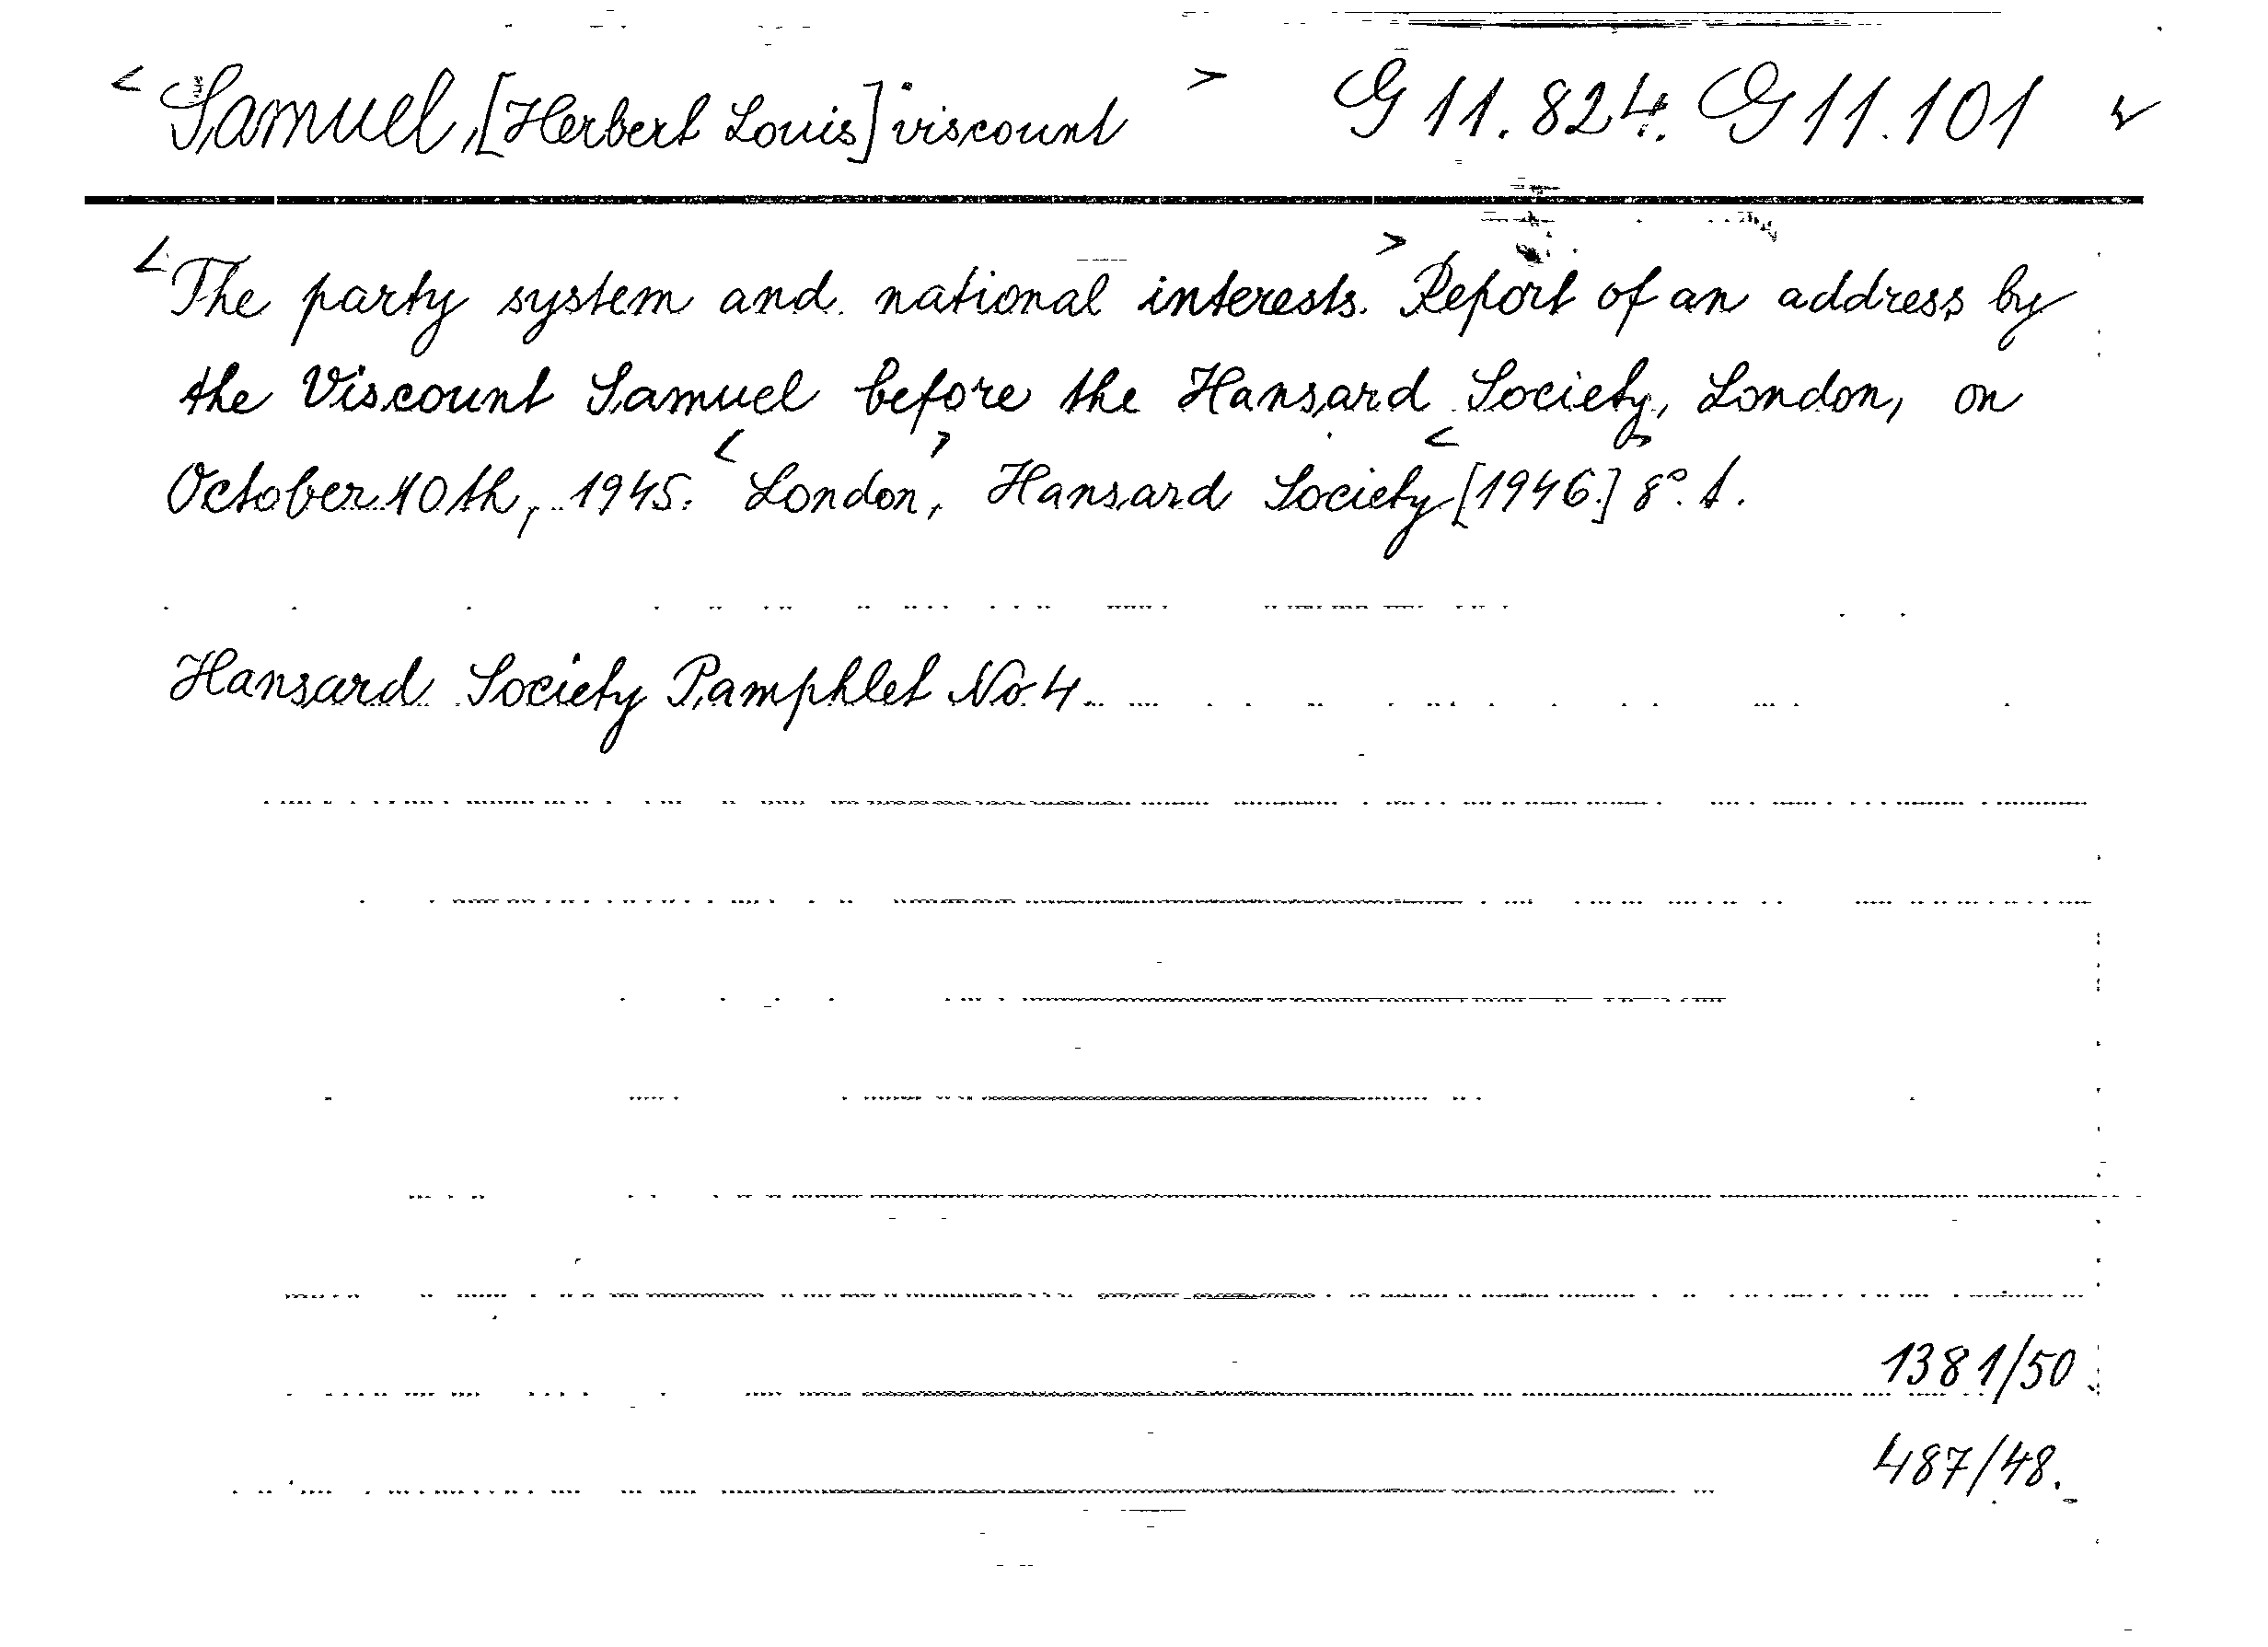 < Samuel, [Herbert Louis] viscount > G 11.824. G 11.101 v
< The party system and national interests. > Report of an address by
the Viscount Samuel before the Hansard Society, London, on
October 10th, 1945. < London, > Hansard Society < [1946.] > 8° t.
Hansard Society Pamphlet No 4.
1381/50.
487/48.